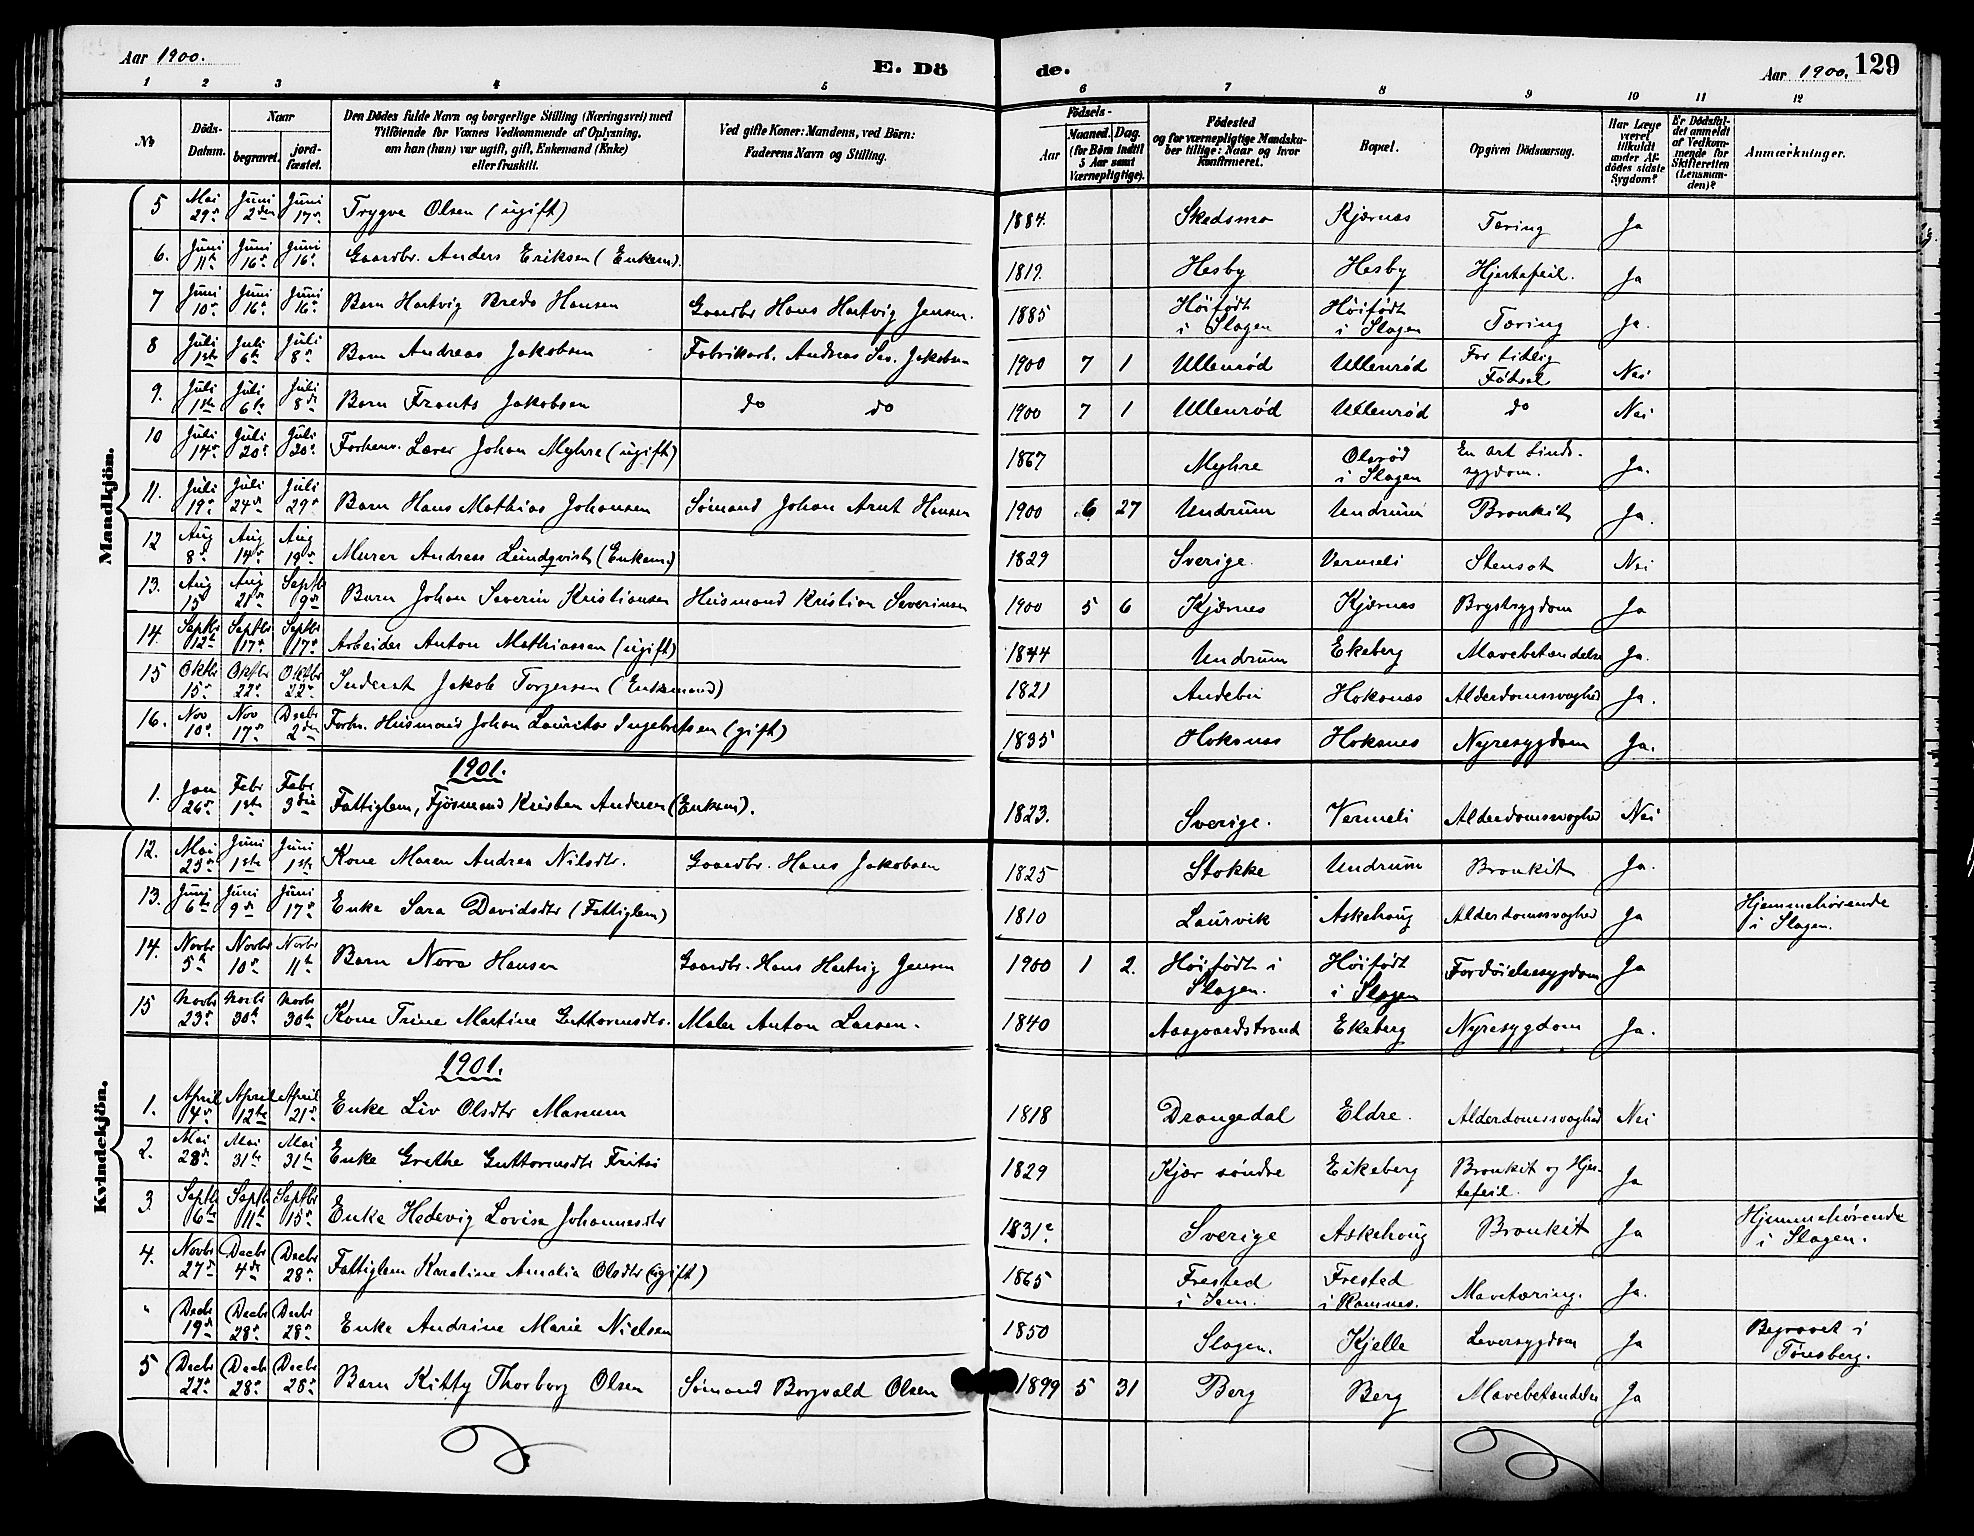 Aar 1900.
E. Dö de.
Aar 1900. 129
1 2 3 4 5 6 7 8 9 10 11 12
No
Döds-Datum.
Naar begravet. jordfæstet.
Den Dödes fulde Navn og borgerlige Stilling (Næringsvei) med Tilföiende for Voxnes Vedkommende af Oplysning, om han (hun) var ugift, gift, Enkemand (Enke) eller fraskilt.
Ved gifte Koner: Mandens, ved Börn: Faderens Navn og Stilling.
Födsels- Aar Maaned. Dag. (for Börn indtil 5 Aar samt Værnepligtige).
Födested og for værnepligtige Mandskaber tillige: Naar og hvor konfirmeret.
Bopæl.
Opgiven Dödsaarsag.
Har Læge været tilkaldt under Afdödes sidste Sygdom?
Er Dödsfaldet anmeldt af Vedkommende for Skifteretten (Lensmanden)?
Anmærkninger.
Mandkjön.
5 Mai 29de Juni 2den Juni 17de Trygve Olsen (ugift) 1884. Skedsmo Kjærnes Tæring Ja
6. Juni 11te Juni 16de Juni 16de Gaardbr. Anders Eriksen (Enkem). 1819. Hesby Hesby Hjertefeil. Ja
7 Juni 10de Juni 16de Juni 16de Barn Hartvig Bredo Hansen Gaardbr Hans Hartvig Jensen. 1885 Höifödt i Slagen Höifödt i Slagen Tæring Ja.
8 Juli 1ste Juli 6te Juli 8de Barn Andreas Jakobsen Fabrikarb. Andreas Jakobsen 1900 7 1 Ullenrød Ullenrød For tidlig Fødsel Nei
9. Juli 1ste Juli 6te Juli 8de Barn Frants Jakobsen do do 1900 7 1 Ullenrød Ullenrød do Nei
10 Juli 14de Juli 20de Juli 20de Forhenv. Lærer Johan Myhre (ugift) 1867 Myhre Olsrød i Slagen En art Sindssygdom. Ja.
11. Juli 19de Juli 24de Juli 29de Barn Hans Mathias Johansen Sømand Johan Arnt Hansen 1900 6 27 Undrum Undrum Bronkit Ja.
12 Aug 8de Aug 14de Aug 19de Murer Andreas Lundqvist (Enkem.) 1829 Sverige. Vermeli Stensot Nei
13. Aug 15 Aug 21de Septbr 9de Barn Johan Severin Kristiansen Husmand Kristian Severinsen 1900 5 6 Kjærnes Kjærnes Brystsygdom Ja
14. Septbr 12te Septbr 17de Septbr 17de Arbeider Anton Mathiassen (ugift) 1844 Undrum Ekeberg Mavebetændelse Ja.
15 Oktbr 15de Oktbr 22de Oktbr 22de Inderst Jakob Torgersen (Enkemand) 1821 Andebu Hoksnæs Alderdomssvaghed Ja.
16. Nov 10de Nov 17de Decbr 2den Forhv. Husmand Johan Lauritz Ingebretsen (gift) 1835 Hoksnes Hoksnes Nyresygdom Ja.
1901.
1. Jan 26de Febr 1ste Febr 3die Fattiglem, Fjøsmand Kristen Andersen (Enkem). 1823. Sverige. Vermeli Alderdomssvaghed Nei
Kvindekjön.
12. Mai 25de Juni 1ste Juni 1ste Kone Maren Andrea Nilsdtr. Gaardbr. Hans Jakobsen 1825 Stokke Undrum Bronkit Ja.
13. Juni 6te Juni 9de Juni 17de Enke Sara Davidsdtr (Fattiglem) 1810 Laurvik Askehoug Alderdomssvaghed Ja Hjemmehørende i Slagen.
14. Novbr 5te Novbr 10de Novbr 11te Barn Nora Hansen Gaardbr. Hans Hartvig Jensen 1900 1 2. Höifödt i Slagen. Höifödt i Slagen Fordøielsessygdom Ja
15 Novbr 23de Novbr 30te Novbr 30te Kone Trine Martine Guttormsdtr. Maler Anton Larsen. 1840 Aasgaardstrand Ekeberg Nyresygdom Ja.
1901.
1. April 4de April 12te April 21de Enke Liv Olsdtr 1818 Drangedal Eldre. Alderdomssvaghed Nei
2. Mai 28de Mai 31te Mai 31te Enke Grethe Guttormsdtr 1829 Kjær søndre Eikeberg Bronkit og Hjertefeil. Ja
3. Septbr 6te Septbr 11te Septbr 15de Enke Hedevig Lovise Johannesdtr 1831 Sverige Askehoug Bronkit Ja Hjemmehørende i Slagen.
4. Novbr 27de Decbr 4de Decbr 28de Fattiglem Karoline Amalia Olsdtr (ugift) 1865 Frested i Sem. Frested i Ramnes. Mavetæring. Ja.
" Decbr 19de Decbr 28de Decbr 28de Enke Andrine Marie Nielsen 1850 Slagen. Kjelle Leversygdom Ja Begravet i Tønsberg.
5 Decbr 22de Decbr 28de Decbr 28de Barn Kitty Thorborg Olsen Sømand Borgvald Olsen 1899 5 31 Berg Berg Mavebetændelse Ja